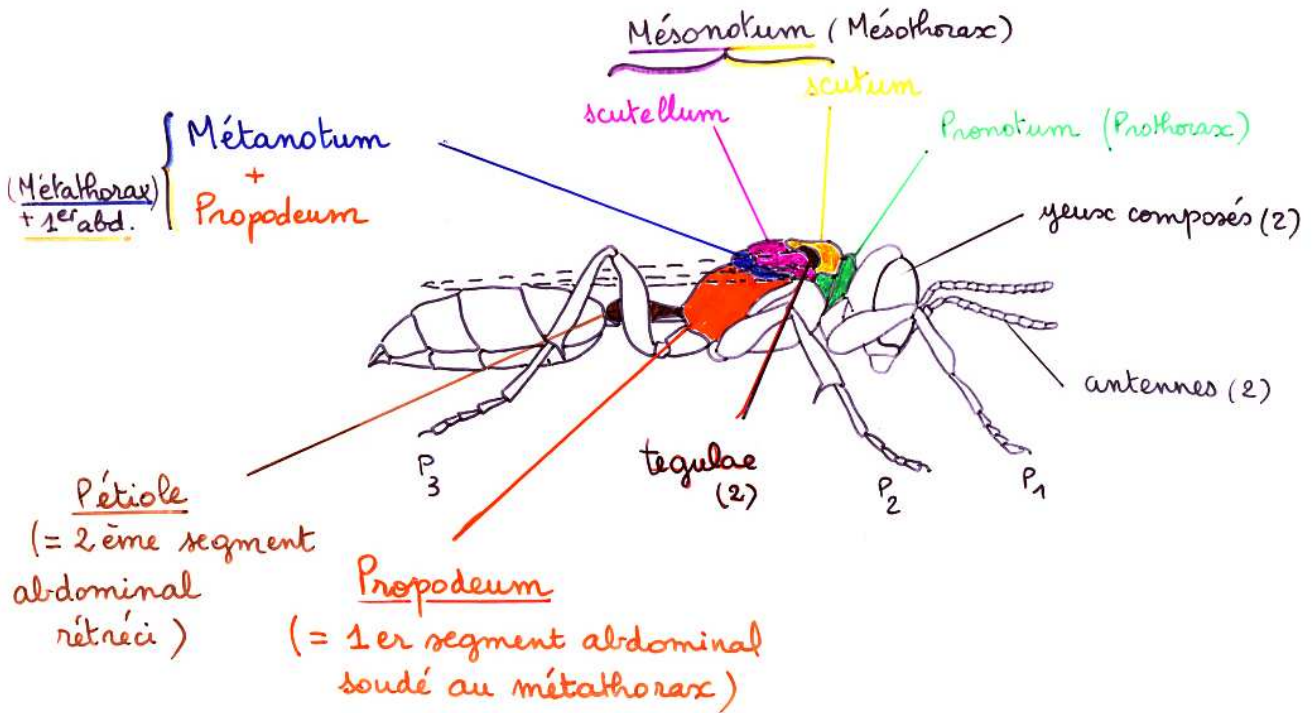 Mésonotum (Mésothorax)
scutellum
scutum
Pronotum (Prothorax)
Métanotum
+
Propodeum
(Métathorax)
+ 1er abd.
yeux composés (2)
antennes (2)
P3
tegulae
(2)
P2
P1
Pétiole
(= 2ème segment
abdominal
rétréci)
Propodeum
(= 1er segment abdominal
soudé au métathorax)